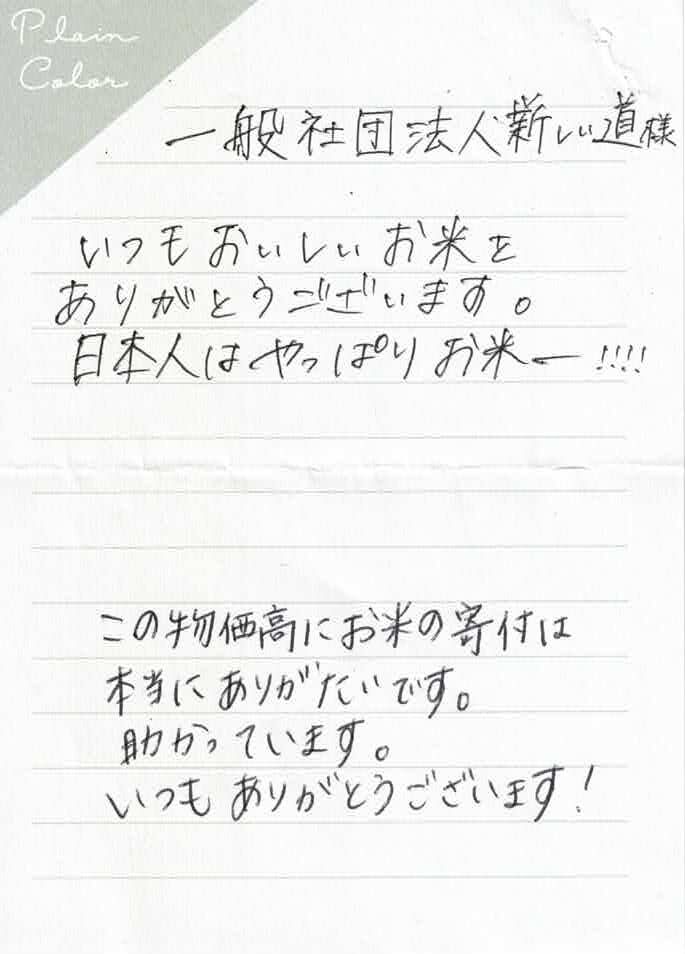 Plain
Color
一般社団法人新しい道様
いつもおいしいお米を
ありがとうございます。
日本人はやっぱりお米ー!!!!
この物価高にお米の寄付は
本当にありがたいです。
助かっています。
いつもありがとうございます!